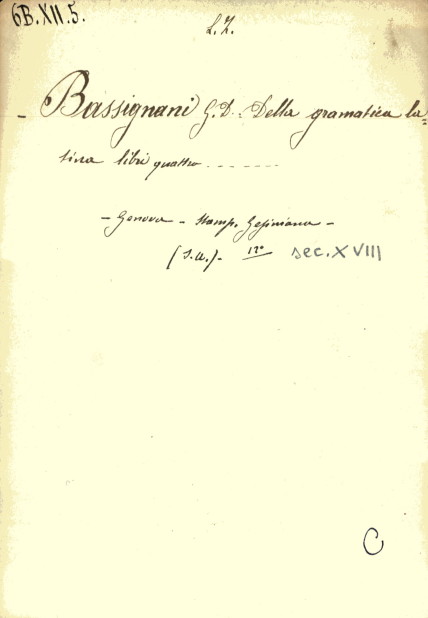 6B.XII.5.
L.Z.
- Bassignani G.D. Della gramatica la=
tina libri quattro - - - - - -
- Genova - Stamp. Gesiniana -
(S.a.) - 12° sec. XVIII
C